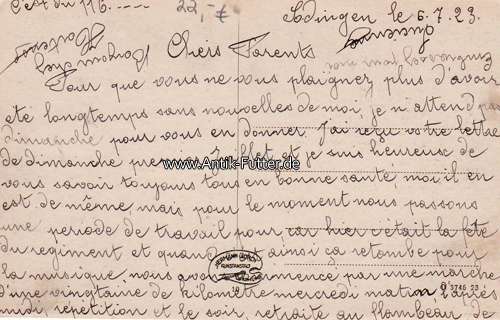 C'est du 116
22,-€
Sodingen le 6.7.23
Chers Parents
Pour que vous ne vous plaignez plus d'avoir
été longtemps sans nouvelles de moi, je n'attend pas
dimanche pour vous en donner. J'ai reçu votre lettre
de dimanche premier Juillet et je suis heureux de
www.Antik-Futter.de
vous savoir toujours tous en bonne santé moi il en
est de même mais pour le moment nous passons
une période de travail pour car hier c'était la fête
du regiment et quand est ainsi ça retombe pour
la musique nous avons commencé par une marche
d'une vingtaine de kilomètre mercredi matin l'après
midi répétition et le soir retraite au flambeau de
HERMANN
KUNSTANSTALT
3746 23